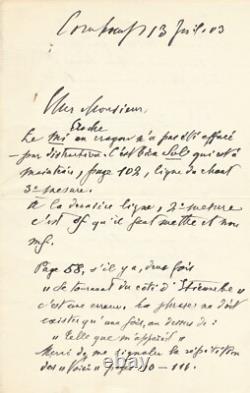 13 Juil. 03
Cher Monsieur,
Croche
Le mi en crayon n'a pas été effacé
par distraction. C'est bien Sol qui est à
maintenir, page 102, ligne du chant
3e mesure.
A la dernière ligne, 2e mesure
c'est sf qu'il faut mettre et non
mf.
Page 58, s'il y a, deux fois
"se tournant du côté d'
c'est une erreur. La phrase ne doit
exister qu'une fois, au dessus de :
"Telle que m'apparaît"
Merci de me signaler la répétition
des "Voici" pages 110-111.
ebay